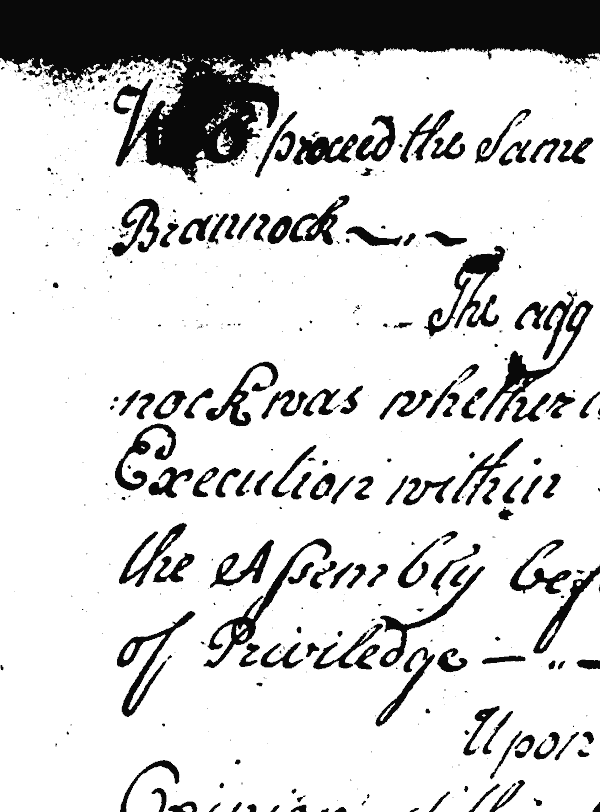 proceed the Same
Brannock
The agg
nock was whether
Execution within
the Assembly bef
of Priviledge
Upon
Opinion